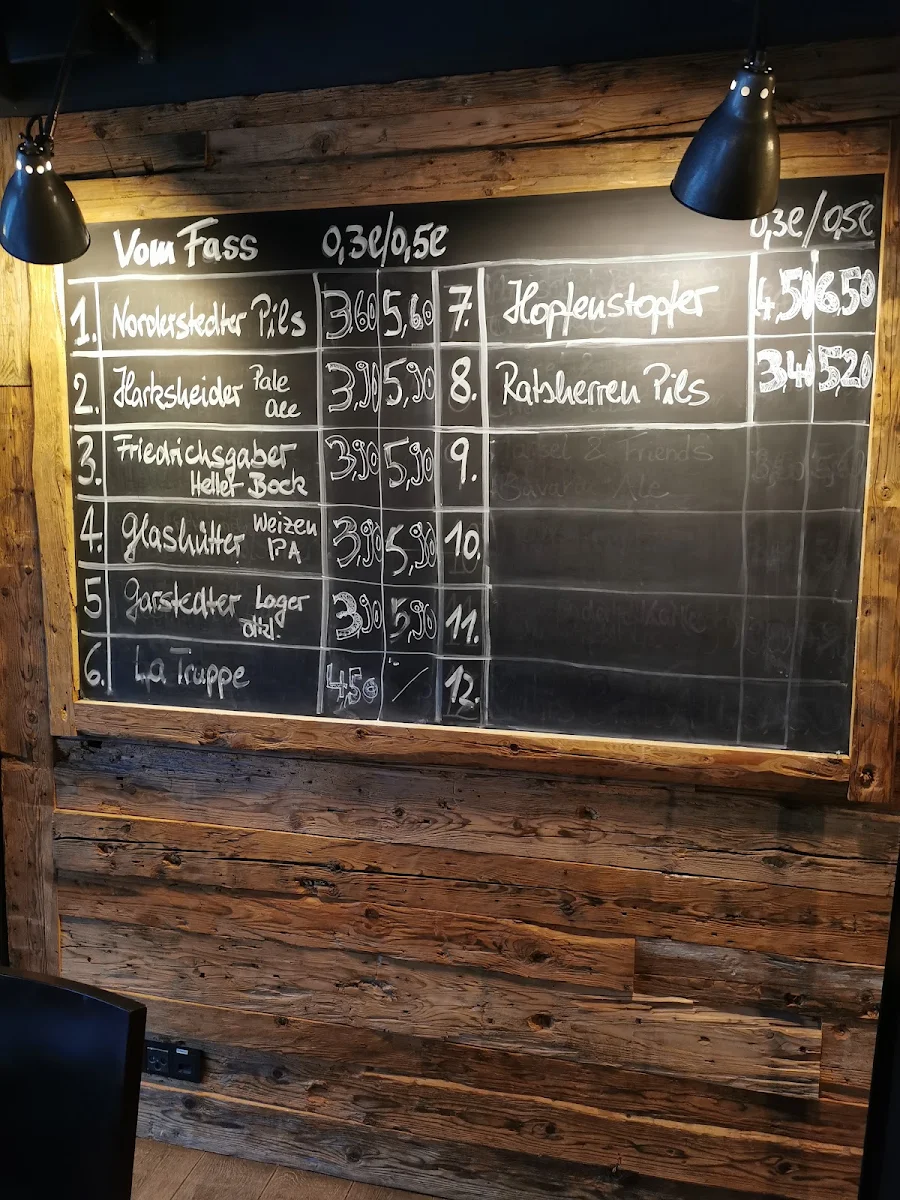 Vom Fass 0,3l/0,5l
1. Norderstedter Pils 3,60 5,60
2. Harksheider Pale Ale 3,90 5,90
3. Friedrichsgaber Heller Bock 3,90 5,90
4. Glashütter Weizen IPA 3,90 5,90
5 Garstedter Lager 3,90 5,90
6. La Trappe 4,50 ./.
0,3l/0,5l
7. Hopfenstopfer 4,50 6,50
8. Ratsherren Pils 3,40 5,20
9.
10.
11.
12.